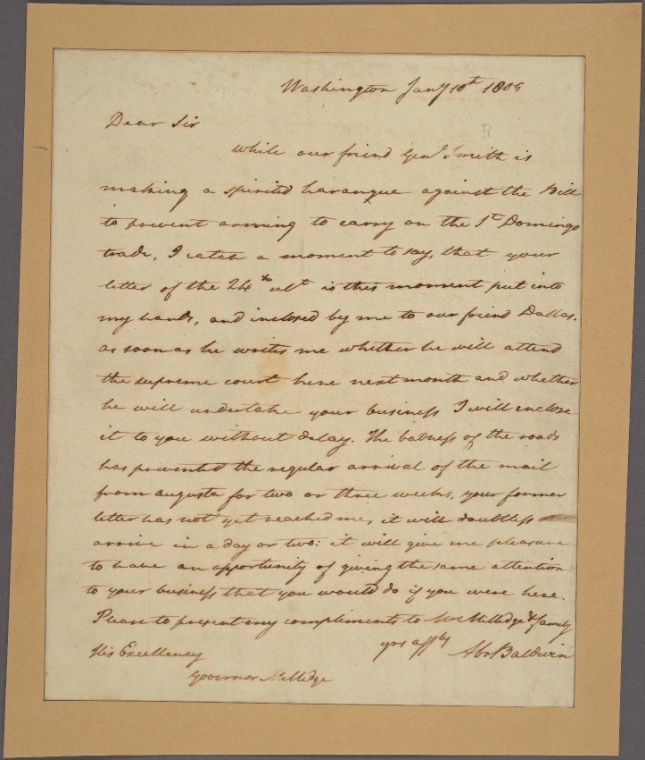 Washington Jany 10th 1805
Dear Sir
While our friend Genl Smith is
making a spirited harangue against the Bill
to prevent arming to carry on the St Domingo
trade, I catch a moment to say, that your
letter of the 24th ult is this moment put into
my hands, and inclosed by me to our friend Dallas.
as soon as he writes me whether he will attend
the supreme court here next month and whether
he will undertake your business I will enclose
it to you without delay. The badness of the roads
has prevented the regular arrival of the mail
from augusta for two or three weeks, your former
letter has not yet reached me, it will doubtless
arrive in a day or two: it will give me pleasure
to have an opportunity of giving the same attention
to your business that you would do if you were here.
Please to present my compliments to Mrs Milledge & family
yrs affly Abr Baldwin
His Excellency
Governor Milledge